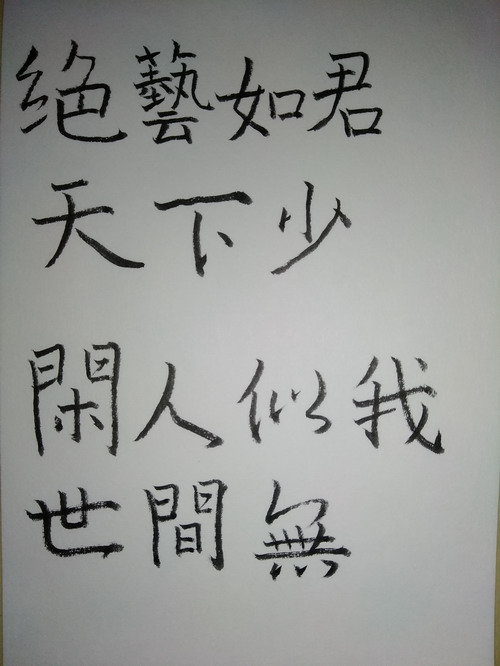 绝藝如君
天下少
閑人似我
世間無